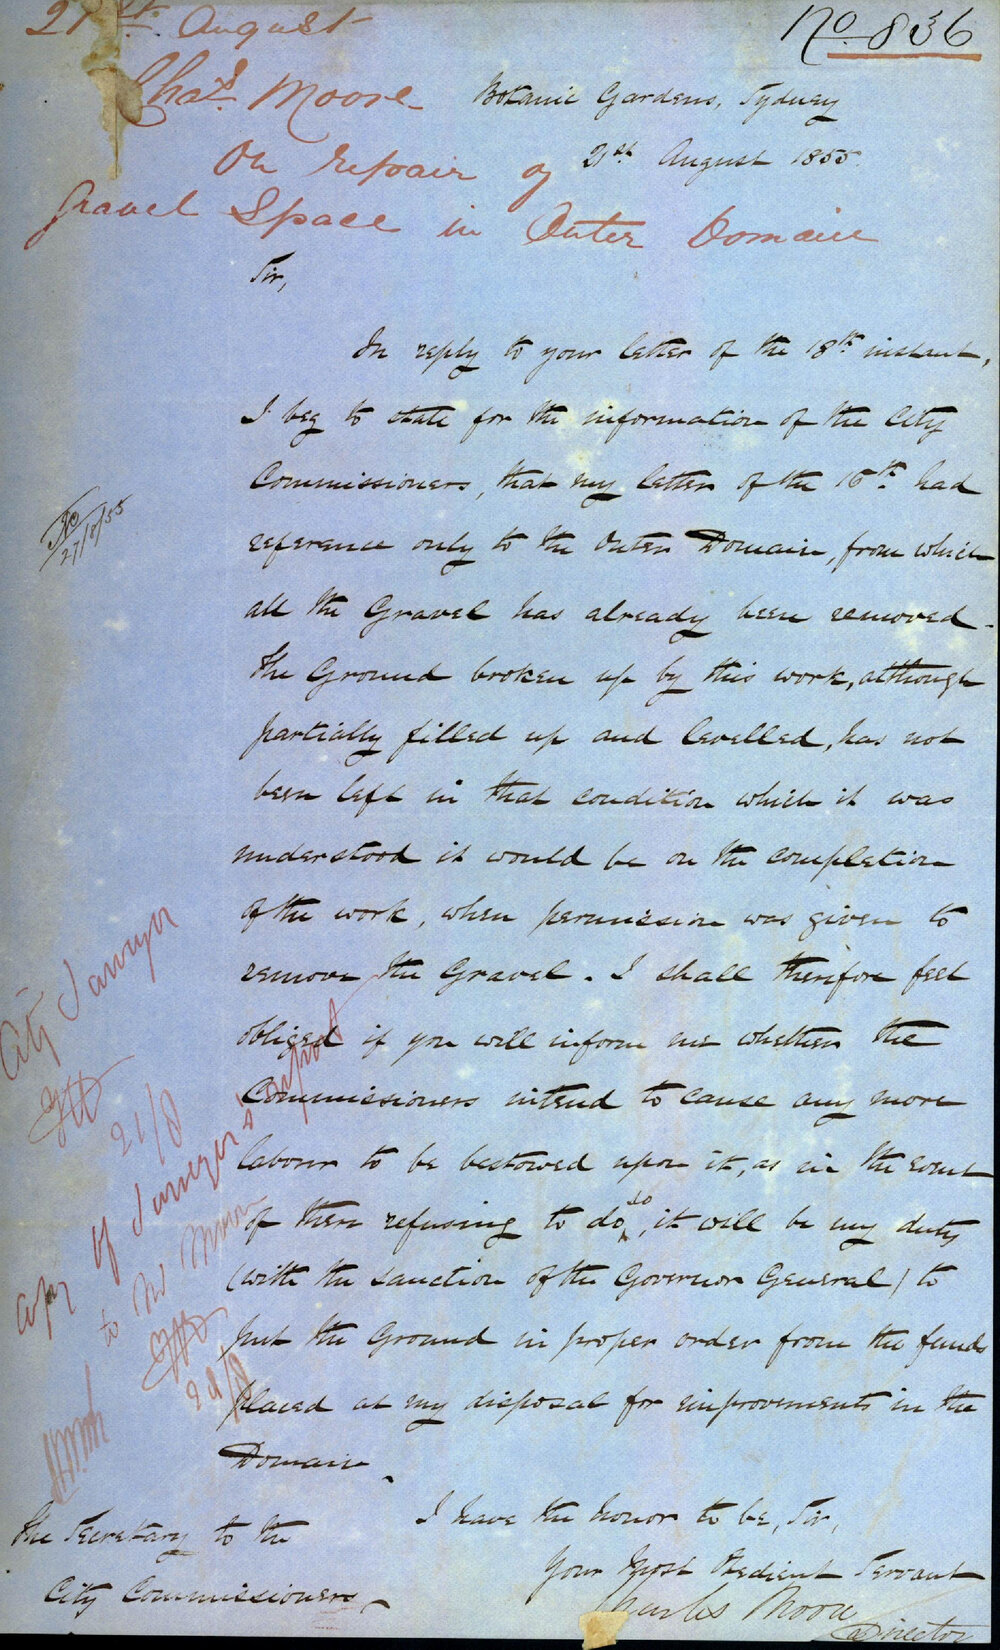 No 836
21st August
Chas Moore
On repair of
Gravel Space in Outer Domain
Botanic Gardens, Sydney
21st August 1855
Sir,
In reply to your letter of the 18th instant,
I beg to state for the information of the City
Commissioners, that my letter of the 16th had
reference only to the Outer Domain, from which
all the Gravel has already been removed.
The Ground broken up by this work, although
partially filled up and levelled, has not
been left in that condition which it was
understood it would be on the completion
of the work, when permission was given to
remove the Gravel. I shall therefore feel
obliged if you will inform me whether the
Commissioners intend to cause any more
labour to be bestowed upon it, as in the event
of them refusing to do so, it will be my duty
(with the sanction of the Governor General) to
put the Ground in proper order from the funds
placed at my disposal for improvements in the
Domain.
I have the honor to be, Sir,
Your Most Obedient Servant
Charles Moore
Director
The Secretary to the
City Commissioners
27/8/55
City Surveyor
21/8
Copy of Surveyor's report
to Mr Moore
29/8